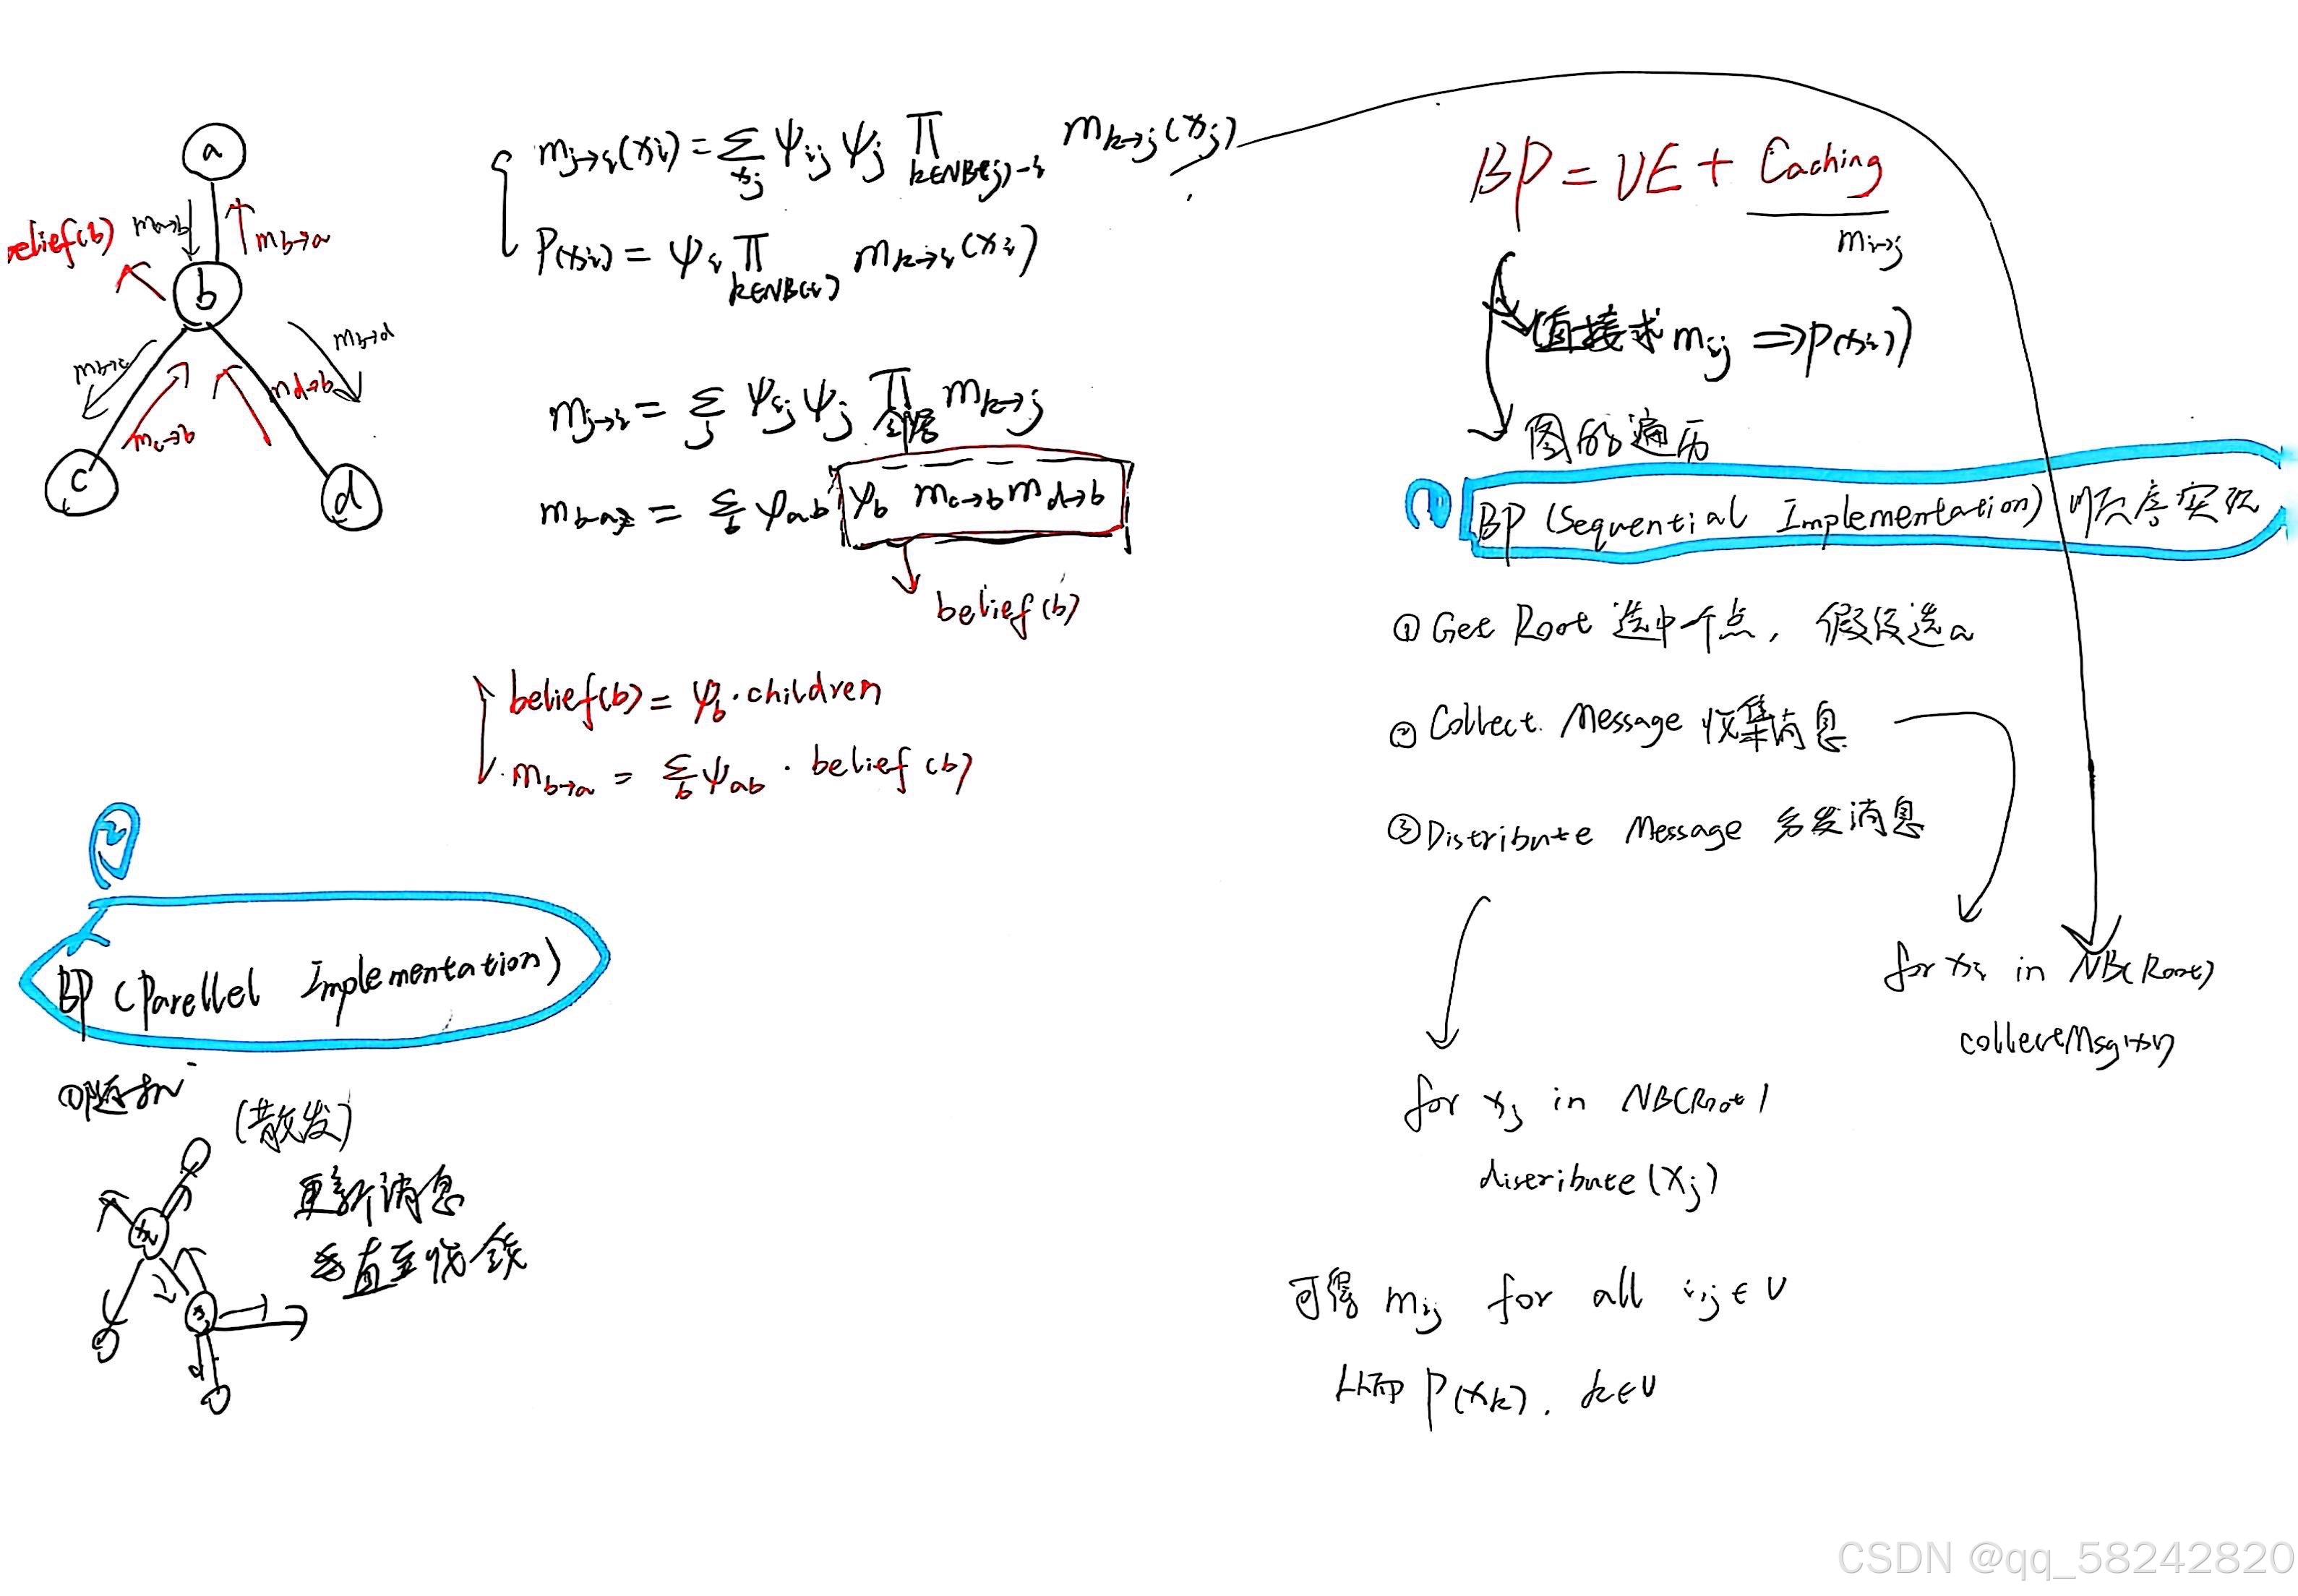 a
belief(b)
m a→b
m b→a
b
m b→c
m b→d
m c→b
m d→b
c
d
m j→i (xi) = Σ xj ψij ψj Π k∈NB(j)-i m k→j (xj)
P(xi) = ψi Π k∈NB(i) m k→i (xi)
m j→i = Σ j ψij ψj Π m k→j
m b→a = Σ b ψab ψb m c→b m d→b
belief(b)
belief(b) = ψb · children
m b→a = Σ b ψab · belief(b)
BP = VE + Caching
m i→j
(直接求 mij ⇒ P(xi))
图的遍历
1
BP (Sequential Implementation) 顺序实现
① Get Root 选中一个点, 假设选a
② Collect Message 收集消息
③ Distribute Message 分发消息
for xi in NB(Root)
collectMsg(xi)
for xj in NB(Root)
distribute(xj)
可得 mij for all i,j ∈ V
从而 P(xk), k∈V
2
BP (Parellel Implementation)
①随机
(散发)
更新消息
直至收敛
CSDN @qq_58242820